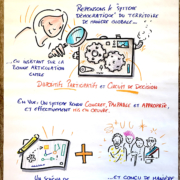 REPENSONS le SYSTÈME
DÉMOCRATIQUE DU TERRITOIRE
DE MANIÈRE OUVERTE -
... EN INSISTANT SUR LA
BONNE ARTICULATION
ENTRE
DISPOSITIFS PARTICIPATIFS ET CIRCUIT DE DÉCISION
EN VUE D'UN SYSTÈME RENDU CONCRET, PALPABLE ET APPROPRIÉ,
ET EFFECTIVEMENT MIS EN OEUVRE.
+
UN SCHÉMA DE
... ET CONÇU DE MANIÈRE